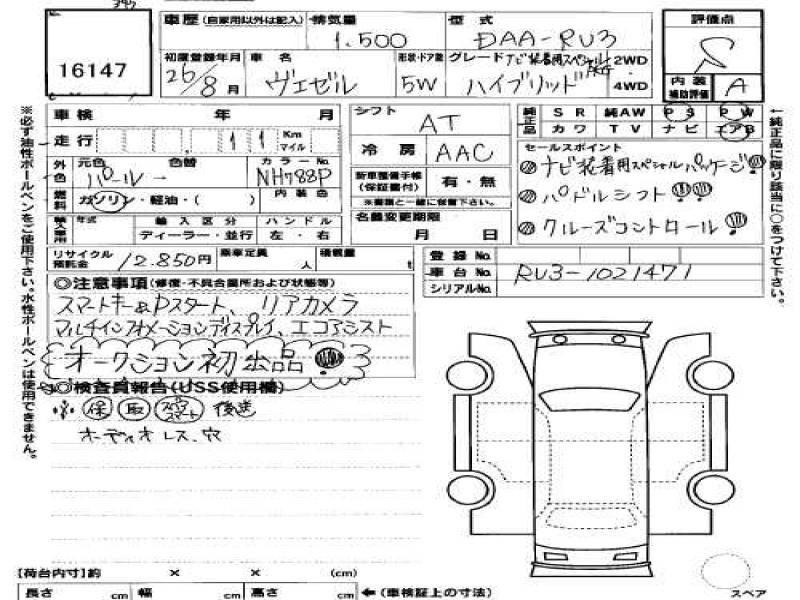 No.
16147
車歴 (自家用以外は記入)
排気量
1.500
型式
DAA-RU3
評価点
S
初度登録年月
26/8月
車名
ヴェゼル
形状・ドア数
5W
グレード ナビ装着用スペシャルPKG
ハイブリッド
2WD
4WD
内装
補助評価
A
車検 年 月
走行 11 Km マイル
外色
元色 パール
色替 -
カラーNo. NH788P
燃料
ガソリン・軽油・( )
内装色
輸入車用
年式
輸入区分
ディーラー・並行
ハンドル
左・右
リサイクル預託金
12.850円
乗車定員 人
積載量 t
シフト AT
冷房 AAC
新車整備手帳(保証書付) 有・無
※書類と一緒に保管下さい。
名義変更期限
月 日
純正品
SR 純AW PS PW
カワ TV ナビ エアB
セールスポイント
ナビ装着用スペシャルパッケージ!
パドルシフト!!
クルーズコントロール!
登録No.
車台No. RU3-1021471
シリアルNo.
◎注意事項(修復・不具合箇所および状態等)
スマートキー&Pスタート、リアカメラ
マルチインフォメーションディスプレイ、エコアシスト
オークション初出品!!
◎検査員報告(USS使用欄)
※ 保 取 後送
オーディオレス、穴
※必ず油性ボールペンをご使用下さい。水性ボールペンは使用できません。
←純正品に限り該当に○をつけて下さい。
【荷台内寸】約 × × (cm)
長さ cm 幅 cm 高さ cm ←(車検証上の寸法)
スペア